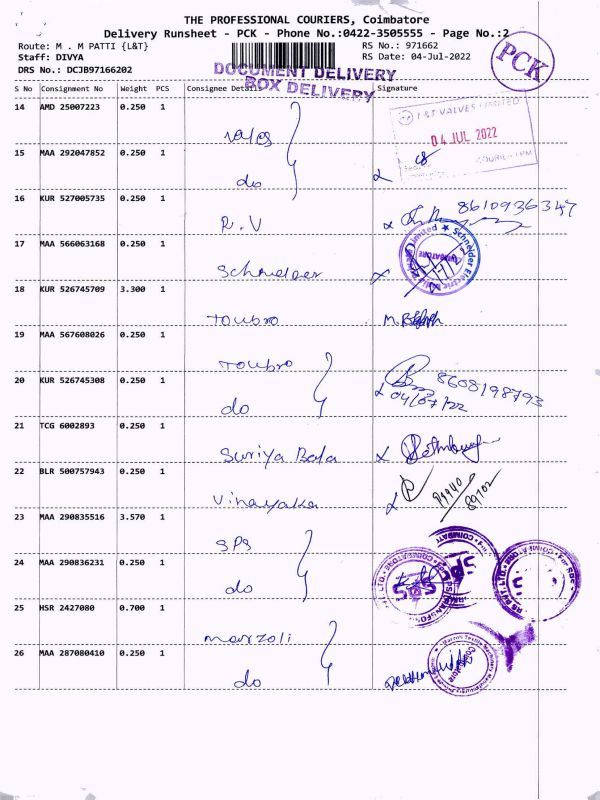 THE PROFESSIONAL COURIERS, Coimbatore
Delivery Runsheet - PCK - Phone No.:0422-3505555 - Page No.:2
Route: M . M PATTI {L&T}
RS No.: 971662
Staff: DIVYA
RS Date: 04-Jul-2022
DRS No.: DCJB97166202
PCK
DOCUMENT DELIVERY
BOX DELIVERY
S No Consignment No Weight PCS Consignee Details Signature
14 AMD 25007223 0.250 1
L&T VALVES LIMITED
04 JUL 2022
15 MAA 292047852 0.250 1
do
16 KUR 527005735 0.250 1
R.V
8610936347
17 MAA 566063168 0.250 1
Schneider
Schneider Electric
18 KUR 526745709 3.300 1
Toubro
19 MAA 567608026 0.250 1
Toubro
20 KUR 526745308 0.250 1
do
8608198793
04/07/22
21 TCG 6002893 0.250 1
Suriya Bala
22 BLR 500757943 0.250 1
Vinayaka
89940
89702
23 MAA 290835516 3.570 1
SPS
24 MAA 290836231 0.250 1
do
SPS
25 HSR 2427080 0.700 1
Marzoli
26 MAA 287080410 0.250 1
do